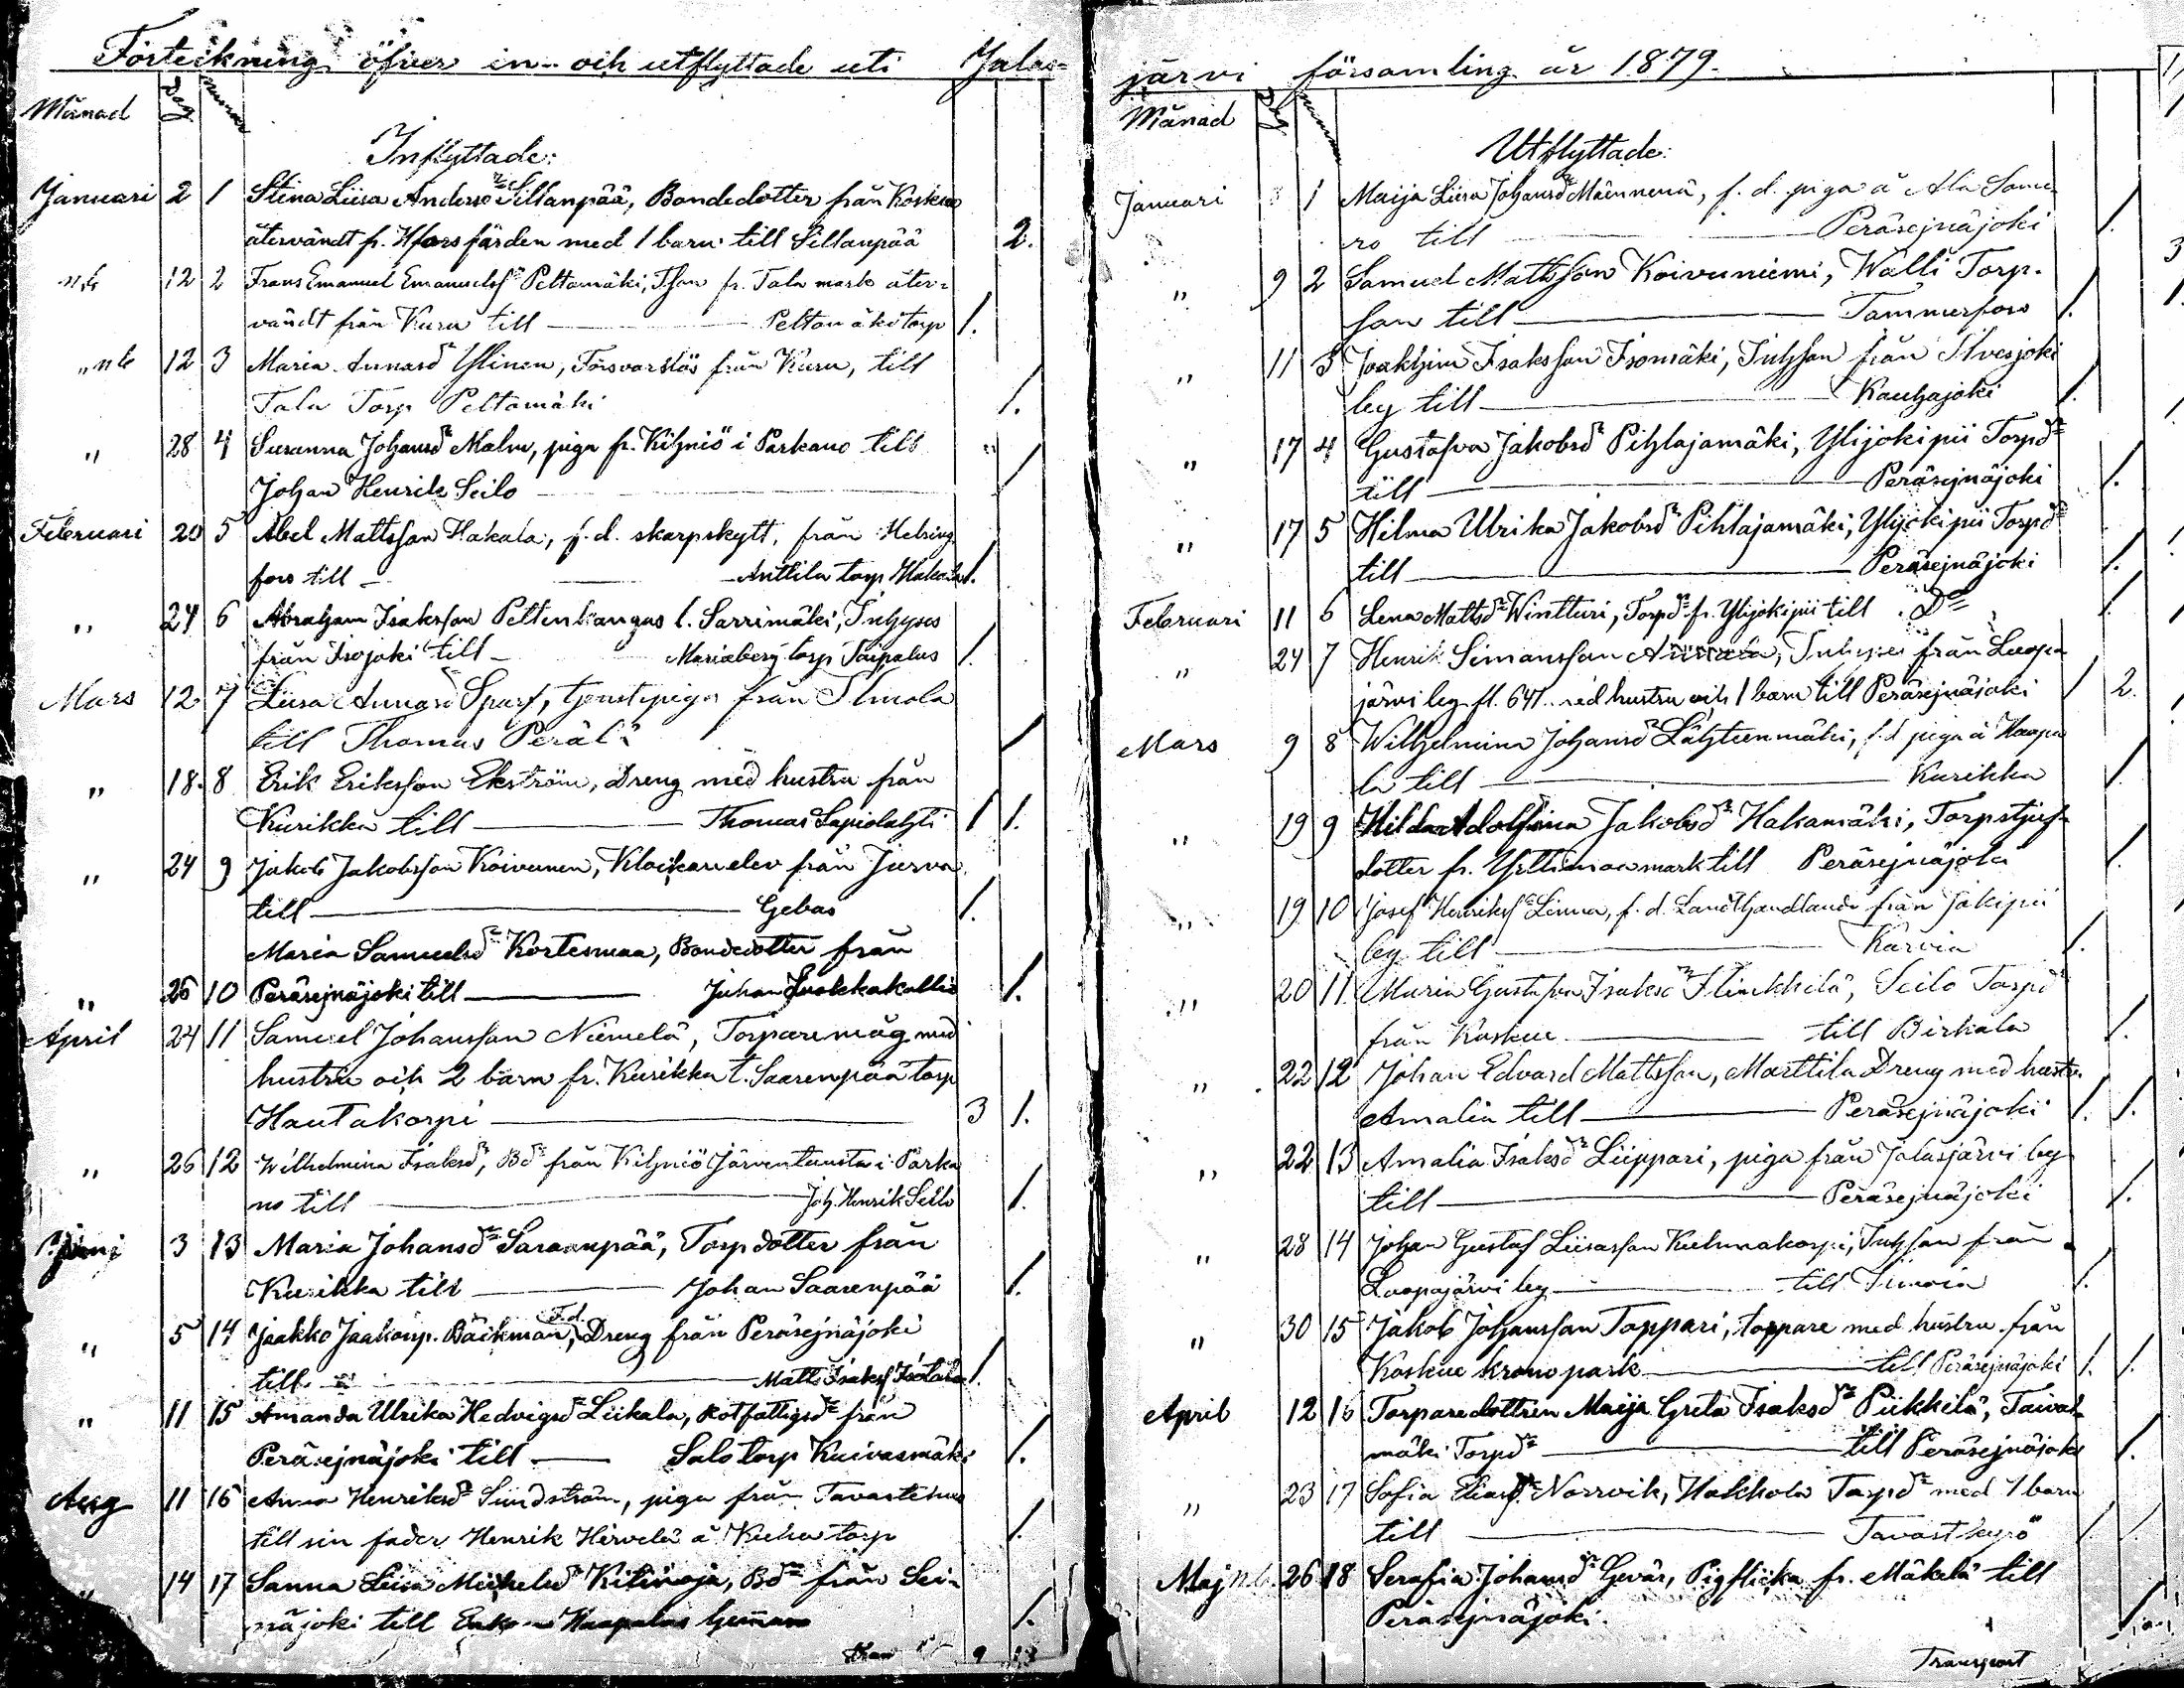 Förteckning öfver in- och utflyttade uti Jalas-
Månad Dag Nummer
Inflyttade:
Januari 2 1 Stina Liisa Andersdr Sillanpää, Bondedotter från Koskue
återvändt fr. Hforsfärden med 1 barn till Sillanpää 2.
12 2 Frans Emanuel Emanuelss. Peltomäki, Tson fr. Tala mark åter-
vändt från Kuru till — Peltomäki torp 1.
12 3 Maria Annasdr Ylinen, Försvarslös från Kuru, till
Tala Torp Peltomäki 1.
" 28 4 Susanna Johansdr Malm, piga fr. Kihniö i Parkano till
Johan Henrik Seilo — 1
Februari 20 5 Abel Mattsson Hakala, f.d. skarpskytt, från Helsing
fors till — Anttila torp Hakala 1.
" 24 6 Abraham Isaksson Peltenkangas l. Sarrimäki, Inhyses
från Isojoki till — Mariæberg torp Taipalus 1.
Mars 12 7 Liisa Annasdr Sparf, tjenstepiga från Ilmola
till Thomas Perälä 1
" 18. 8 Erik Eriksson Ekström, Dreng med hustru från
Kurikka till — Thomas Lapiolahti 1 1.
" 24 9 Jakob Jakobsson Koivunen, Klockarelev från Jurva
till — Gebas 1.
Maria Samuelsdr Kortesmaa, Bondedotter från
" 26 10 Peräsejnäjoki till — Juhan Luokkakallio 1.
April 24 11 Samuel Johansson Niemelä, Torparemåg med
hustru och 2 barn fr. Kurikka t. Saarenpää torp
Hautakorpi — 3 1.
" 26 12 Wilhelmina Isaksdr, Bdr från Kihniö Järventausta i Parka
no till — Joh. Henrik Seilo 1.
Juni 3 13 Maria Johansdr Saraanpää, Torpdotter från
Kurikka till — Johan Saarenpää 1.
" 5 14 Jaakko Jaakonp. Bäckman, F.d. Dreng från Peräsejnäjoki
till — Matts Isakss Isotalo 1.
" 11 15 Amanda Ulrika Hedvigsdr Liikala, Rotfattigdr från
Peräsejnäjoki till — Salo torp Kuivasmäki 1.
Aug 11 16 Anna Henriksdr Sundström, piga från Tavastehus
till sin fader Henrik Hirvelä å Kuha torp 1.
" 14 17 Sanna Liisa Michelsdr Kitinoja, Bdr från Sei-
näjoki till Enkan Haapalas hemman 1.
Tran 9 13
järvi församling år 1879.
Månad Dag Nummer
Utflyttade:
Januari 1 Maija Liisa Johansdr Männenä, f.d. piga å Ala Same
ro till — Peräsejnäjoki 1.
" 9 2 Samuel Mattsson Koivuniemi, Walli Torp.
son till — Tammerfors 1.
" 11 3 Joakhim Isaksson Isomäki, Inhson från Ilvesjoki
by till — Kauhajoki 1.
" 17 4 Gustafva Jakobsdr Pihlajamäki, Ylijokipii Torpdr
till — Peräsejnäjoki 1.
" 17 5 Hilma Ulrika Jakobsdr Pihlajamäki, Ylijokipii Torpdr
till — Peräsejnäjoki 1.
Februari 11 6 Lena Mattsdr Wintturi, Torpdr fr. Ylijokipii till Do 1.
" 24 7 Henrik Simansson från Luopa
järvi by fl. 641 med hustru och 1 barn till Peräsejnäjoki 1 2.
Mars 9 8 Wilhelmina Johansdr Lähteenmäki, f.d piga å Haapa
la till — Kurikka 1.
" 19 9 Hilda Adolfina Jakobsdr Hakamäki, Torpstjuf
dotter fr. Yrttimaa mark till Peräsejnäjoki 1.
" 19 10 Josef Henrikss Linna, f.d. Landthandlande från Jokipii
by till — Karvia 1.
" 20 11 Maria Gustafva Isaksdr Flinkkilä, Seilo Torpd
från Koskue — till Birkala 1.
" 22 12 Johan Edvard Mattsson, Marttila Dreng med hustru
Amalia till — Peräsejnäjoki 1. 1.
" 22 13 Amalia Isaksdr Liippari, piga från Jalasjärvi by
till — Peräsejnäjoki 1.
" 28 14 Johan Gustaf Liisasson Kuhnakorpi, Inhson från
Luopajärvi by — till Ilmola 1.
" 30 15 Jakob Johansson Toppari, torpare med hustru från
Koskue kronopark — till Peräsejnäjoki 1. 1.
April 12 16 Torparedottren Maija Greta Isaksdr Piikkilä, Taival
mäki Torpdr — till Peräsejnäjoki 1.
" 23 17 Sofia Eliasdr Norrvik, Hakkola Torpdr med 1 barn
till — Tavastkyrö 1 1
Maj 26 18 Serafia Johansdr Gevär, Pigflicka fr. Mäkelä till
Peräsejnäjoki. 1.
Transport